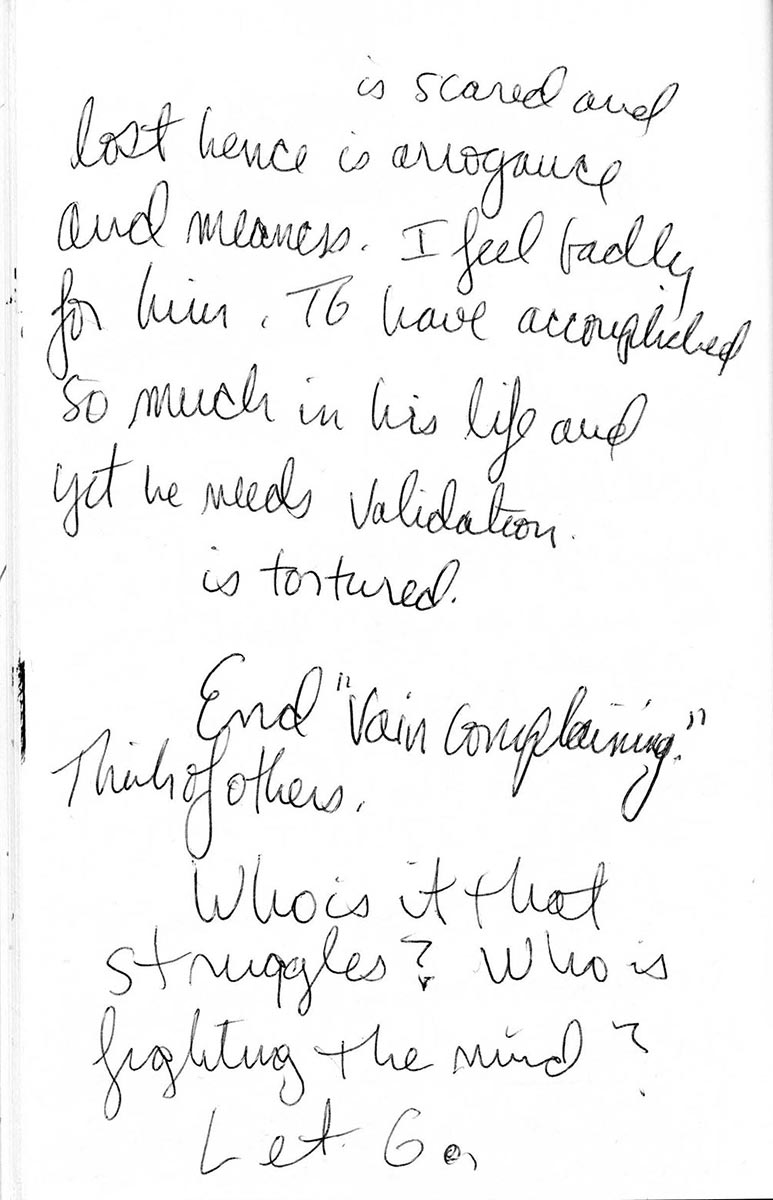 is scared and
lost hence is arrogance
and meaness. I feel badly
for him. To have accomplished
so much in his life and
yet he needs validation.
is tortured.
End "Vain Complaining."
Think of others.
Who is it that
struggles? Who is
fighting the mind?
Let Go